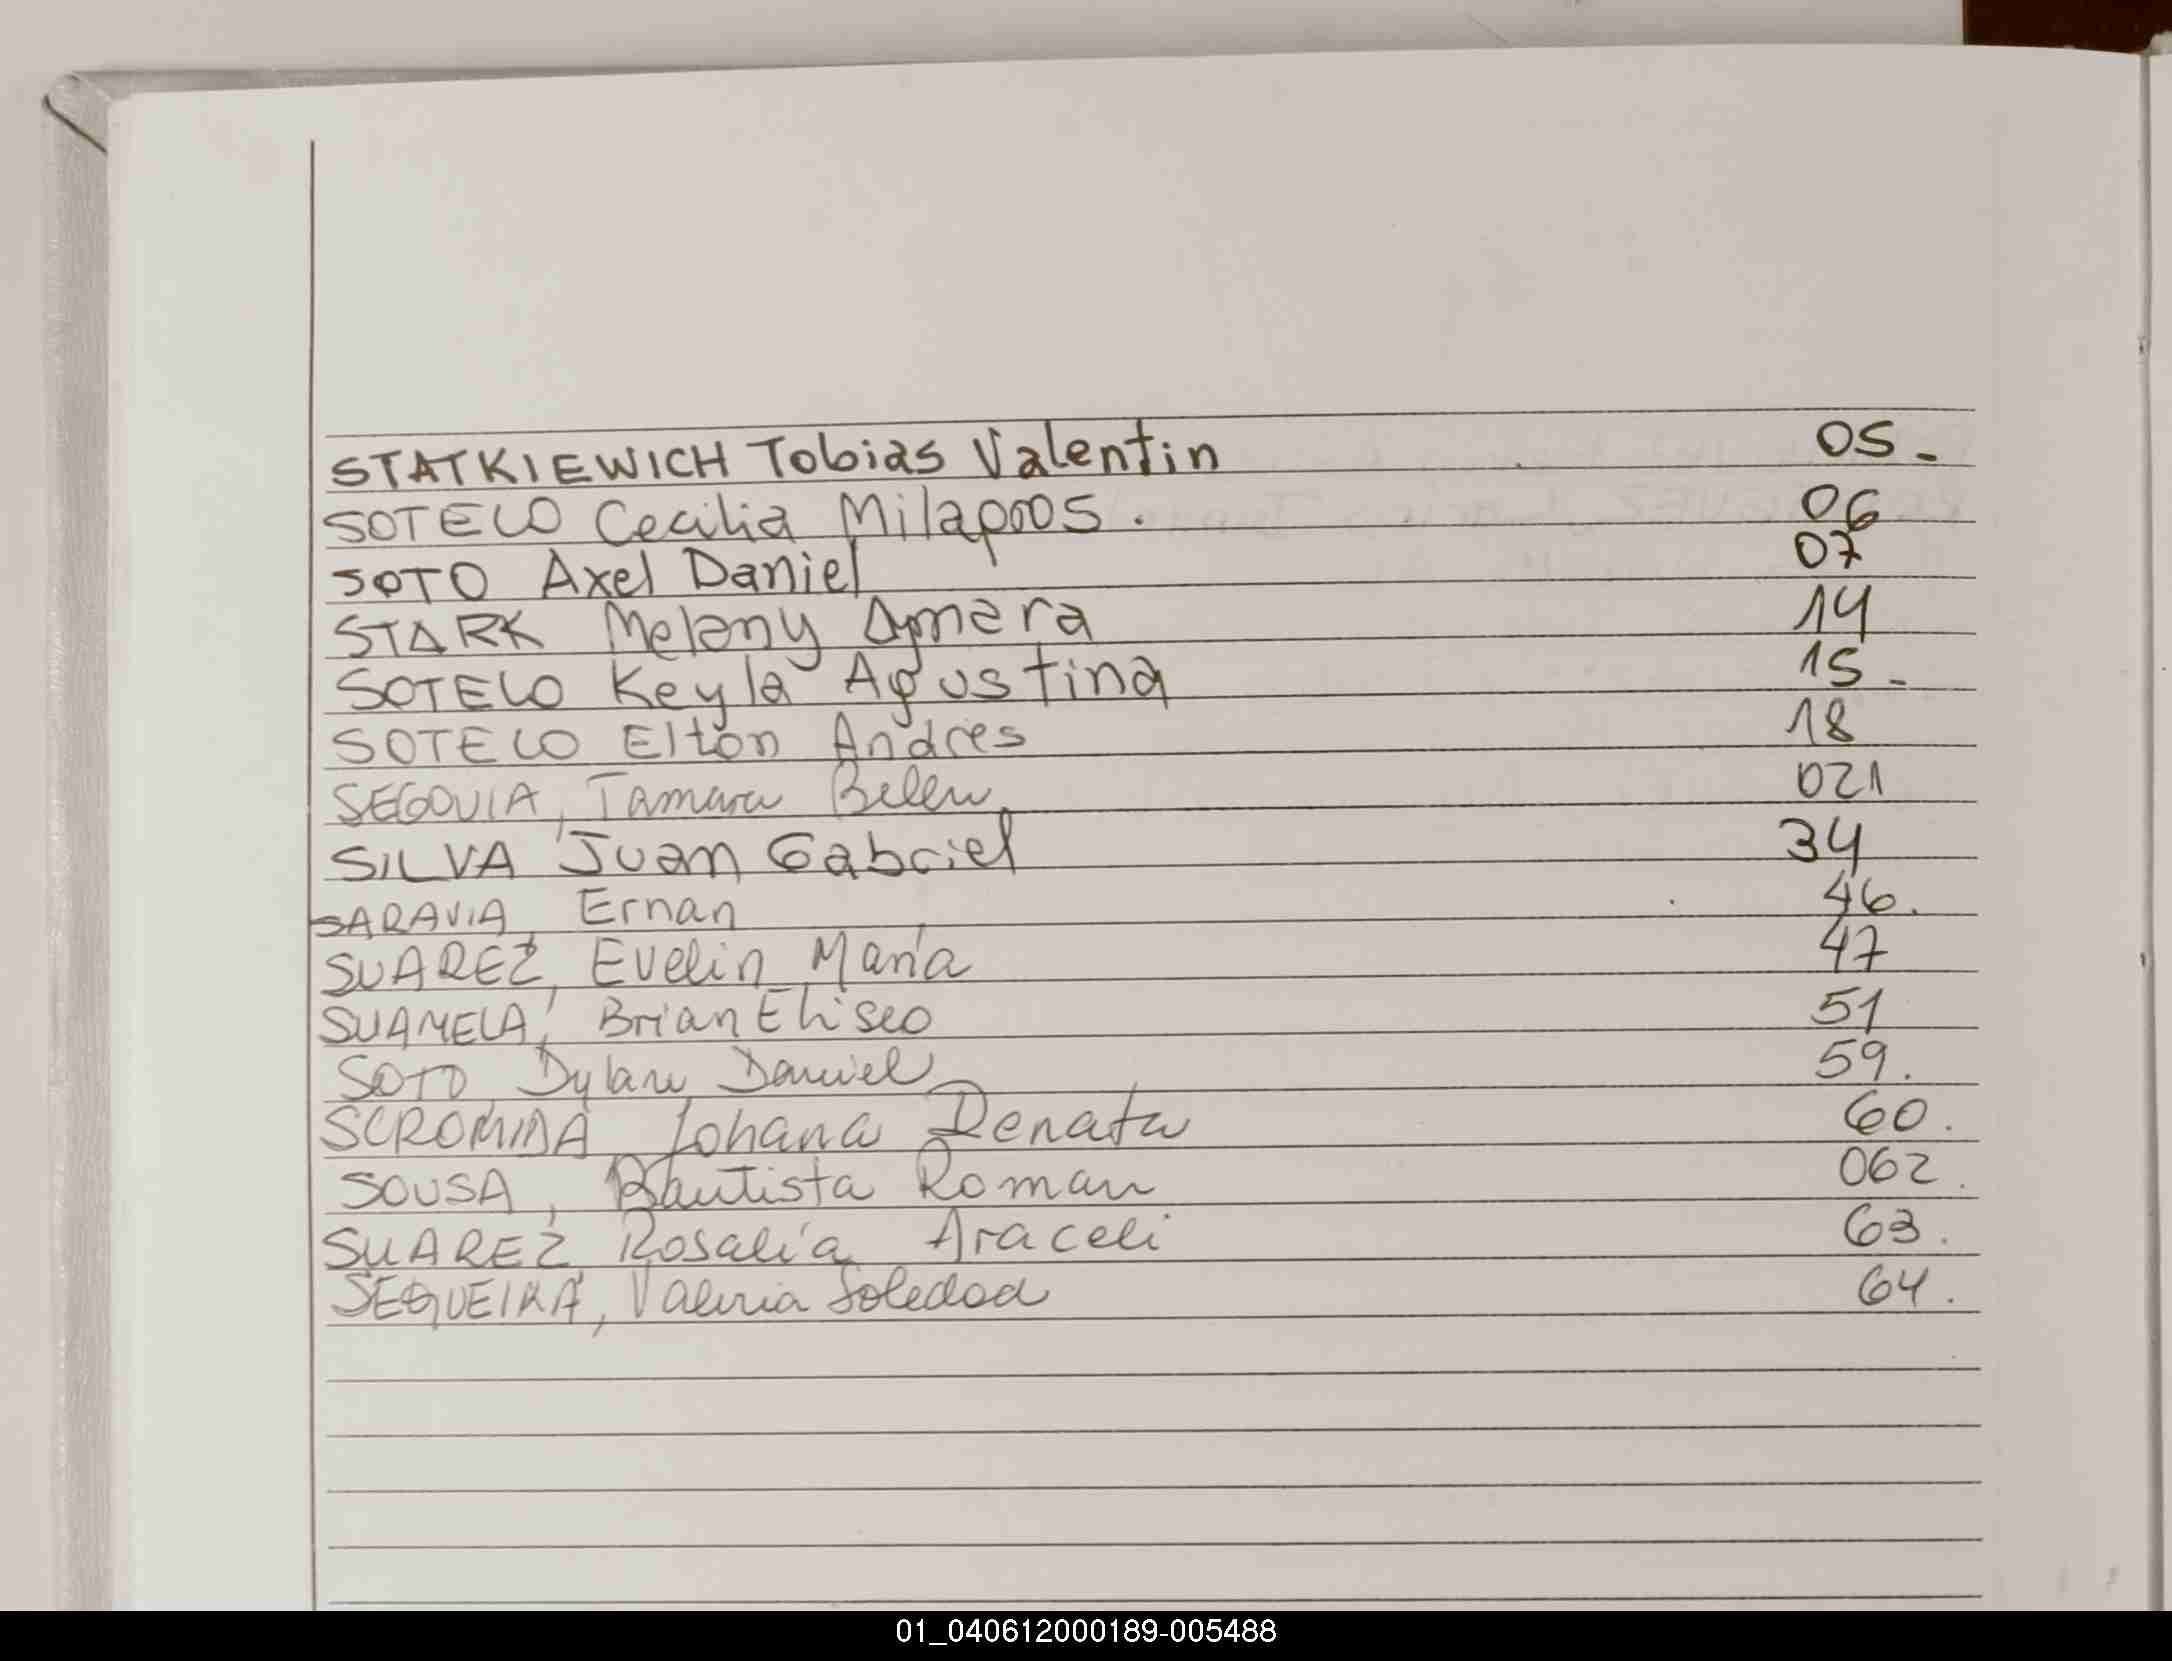 STATKIEWICH Tobias Valentin 05-
SOTELO Cecilia Milagros. 06
SOTO Axel Daniel 07
STARK Melany Aymara 14
SOTELO Keyla Agustina 15-
SOTELO Elton Andres 18
SEGOVIA, Tamara Belen 021
SILVA Juan Gabriel 34
SARAVIA, Ernan 46.
SUAREZ, Evelin María 47
SUAMELA, Brian Eliseo 51
SOTO, Dylan Daniel 59.
SCROMIDA Johana Renata 60.
SOUSA, Bautista Roman 062.
SUAREZ, Rosalía Araceli 63.
SEQUEIRA, Valeria Soledad 64.
01_040612000189-005488